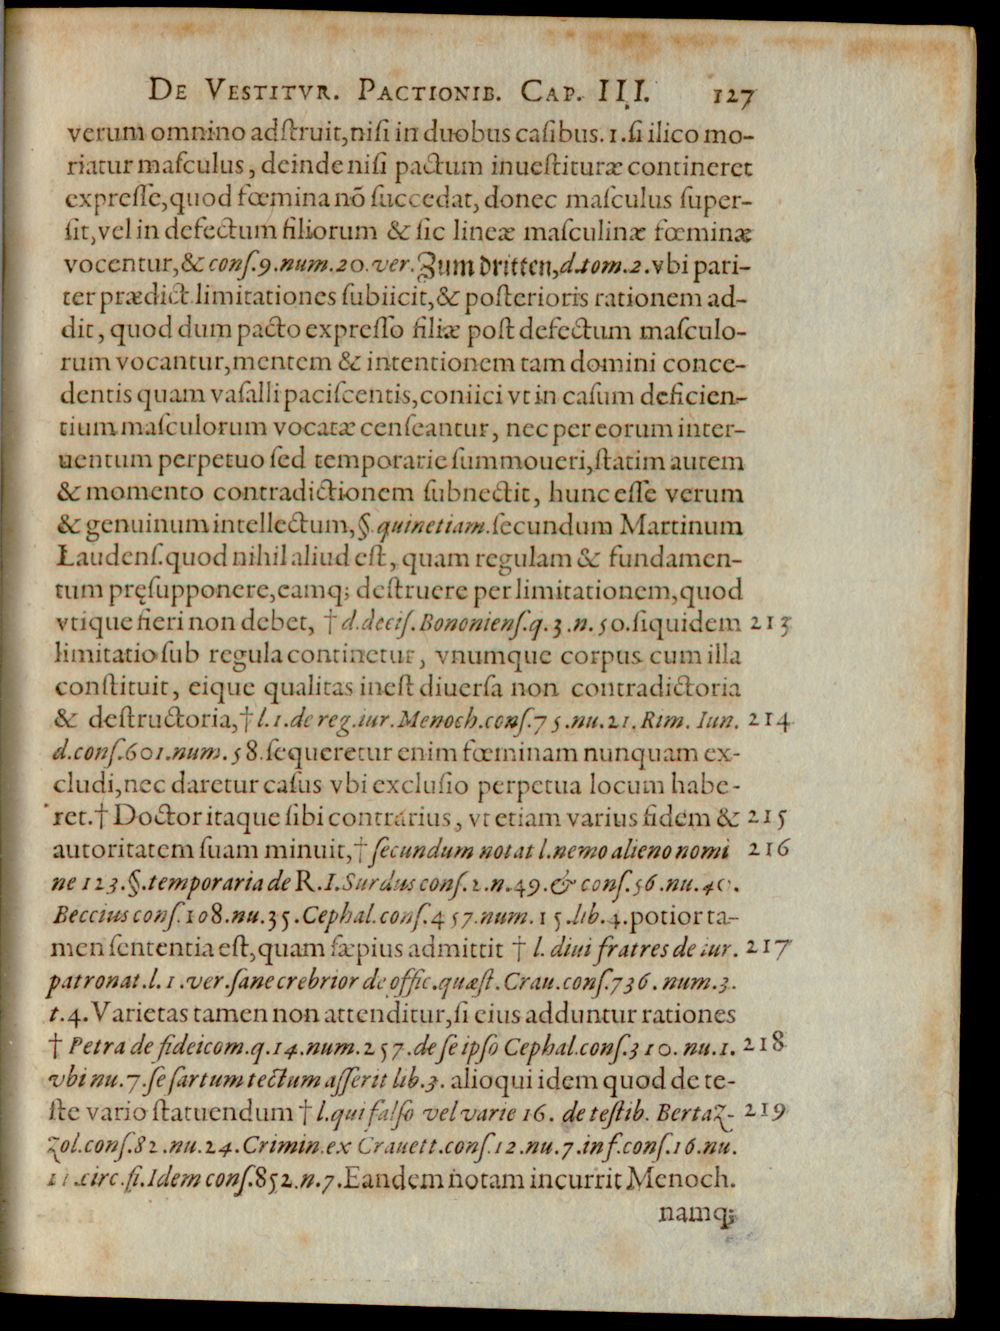 DE VESTITVR. PACTIONIB. CAP. III. 127
verum omnino adſtruit, niſi in duobus caſibus. 1. ſi ilico mo-
riatur maſculus, deinde niſi pactum inueſtituræ contineret
expreſſe, quod fœmina nõ ſuccedat, donec maſculus ſuper-
ſit, vel in defectum filiorum & ſic lineæ maſculinæ fœminæ
vocentur, & conſ. 9. num. 20. ver. Zum dritten, d. tom. 2. vbi pari-
ter prædict. limitationes ſubiicit, & poſterioris rationem ad-
dit, quod dum pacto expreſſo filiæ poſt defectum maſculo-
rum vocantur, mentem & intentionem tam domini conce-
dentis quam vaſalli paciſcentis, coniici vt in caſum deficien-
tium maſculorum vocatæ cenſeantur, nec per eorum inter-
uentum perpetuo ſed temporarie ſummoueri, ſtatim autem
& momento contradictionem ſubnectit, hunc eſſe verum
& genuinum intellectum, §. quinetiam. ſecundum Martinum
Laudenſ. quod nihil aliud eſt, quam regulam & fundamen-
tum pręſupponere, eamq; deſtruere per limitationem, quod
vtique fieri non debet, † d. deciſ. Bononienſ. q. 3. n. 50. ſiquidem 213
limitatio ſub regula continetur, vnumque corpus cum illa
conſtituit, eique qualitas ineſt diuerſa non contradictoria
& deſtructoria, † l. 1. de reg. iur. Menoch. conſ. 75. nu. 21. Rim. Iun. 214
d. conſ. 601. num. 58. ſequeretur enim fœminam nunquam ex-
cludi, nec daretur caſus vbi excluſio perpetua locum habe-
ret. † Doctor itaque ſibi contrarius, vt etiam varius fidem & 215
autoritatem ſuam minuit, † ſecundum notat l. nemo alieno nomi 216
ne 123. §. temporaria de R. I. Surdus conſ. 2. n. 49. & conſ. 56. nu. 40.
Beccius conſ. 108. nu. 35. Cephal. conſ. 457. num. 15. lib. 4. potior ta-
men ſententia eſt, quam ſæpius admittit † l. diui fratres de iur. 217
patronat. l. 1. ver. ſane crebrior de offic. quæſt. Crau. conſ. 736. num. 3.
t. 4. Varietas tamen non attenditur, ſi eius adduntur rationes
† Petra de fideicom. q. 14. num. 257. de ſe ipſo Cephal. conſ. 310. nu. 1. 218
vbi nu. 7. ſe ſartum tectum aſſerit lib. 3. alioqui idem quod de te-
ſte vario ſtatuendum † l. qui falſo vel varie 16. de teſtib. Bertaz- 219
zol. conſ. 82. nu. 24. Crimin. ex Crauett. conſ. 12. nu. 7. inf. conſ. 16. nu.
11. circ. fi. Idem conſ. 852. n. 7. Eandem notam incurrit Menoch.
namq;